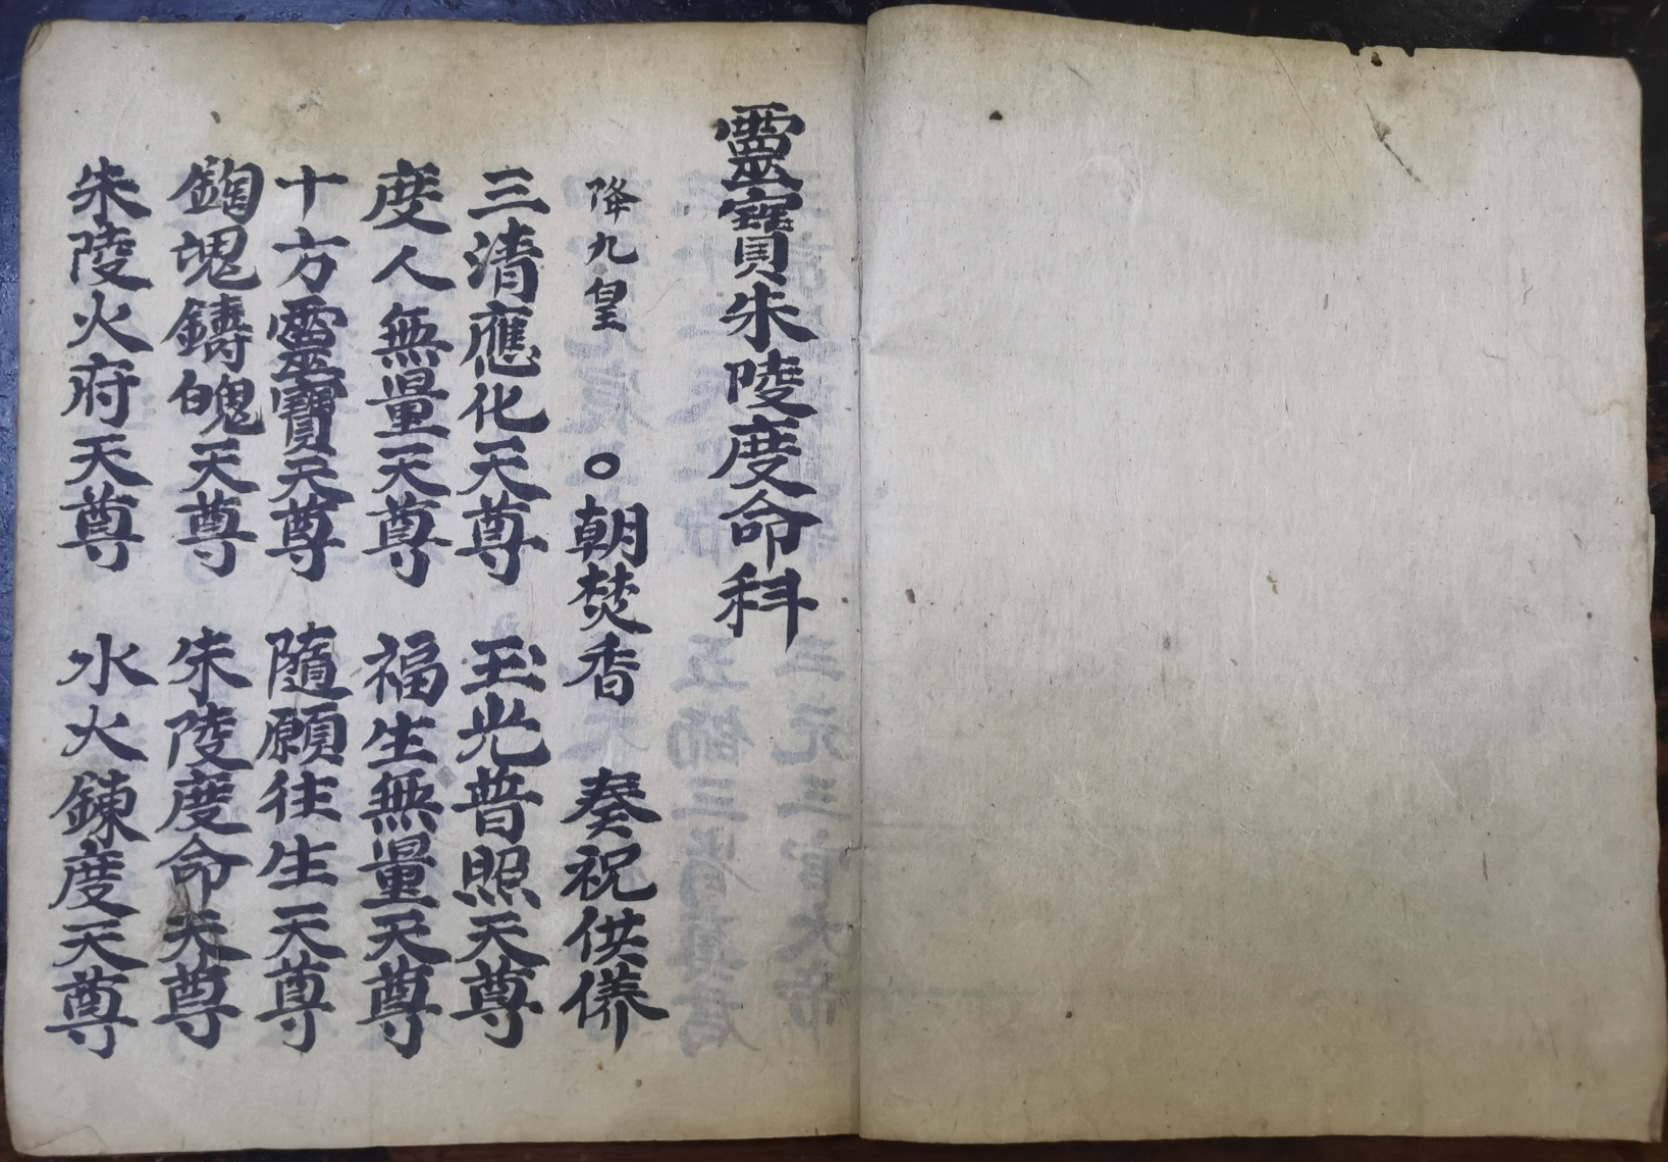 靈寶朱陵度命科
降九皇 ○朝焚香 奏祝供養
三清應化天尊 玉光普照天尊
度人無量天尊 福生無量天尊
十方靈寶天尊 隨願往生天尊
鍧塊鑄魄天尊 朱陵度命天尊
朱陵火府天尊 水火鍊度天尊